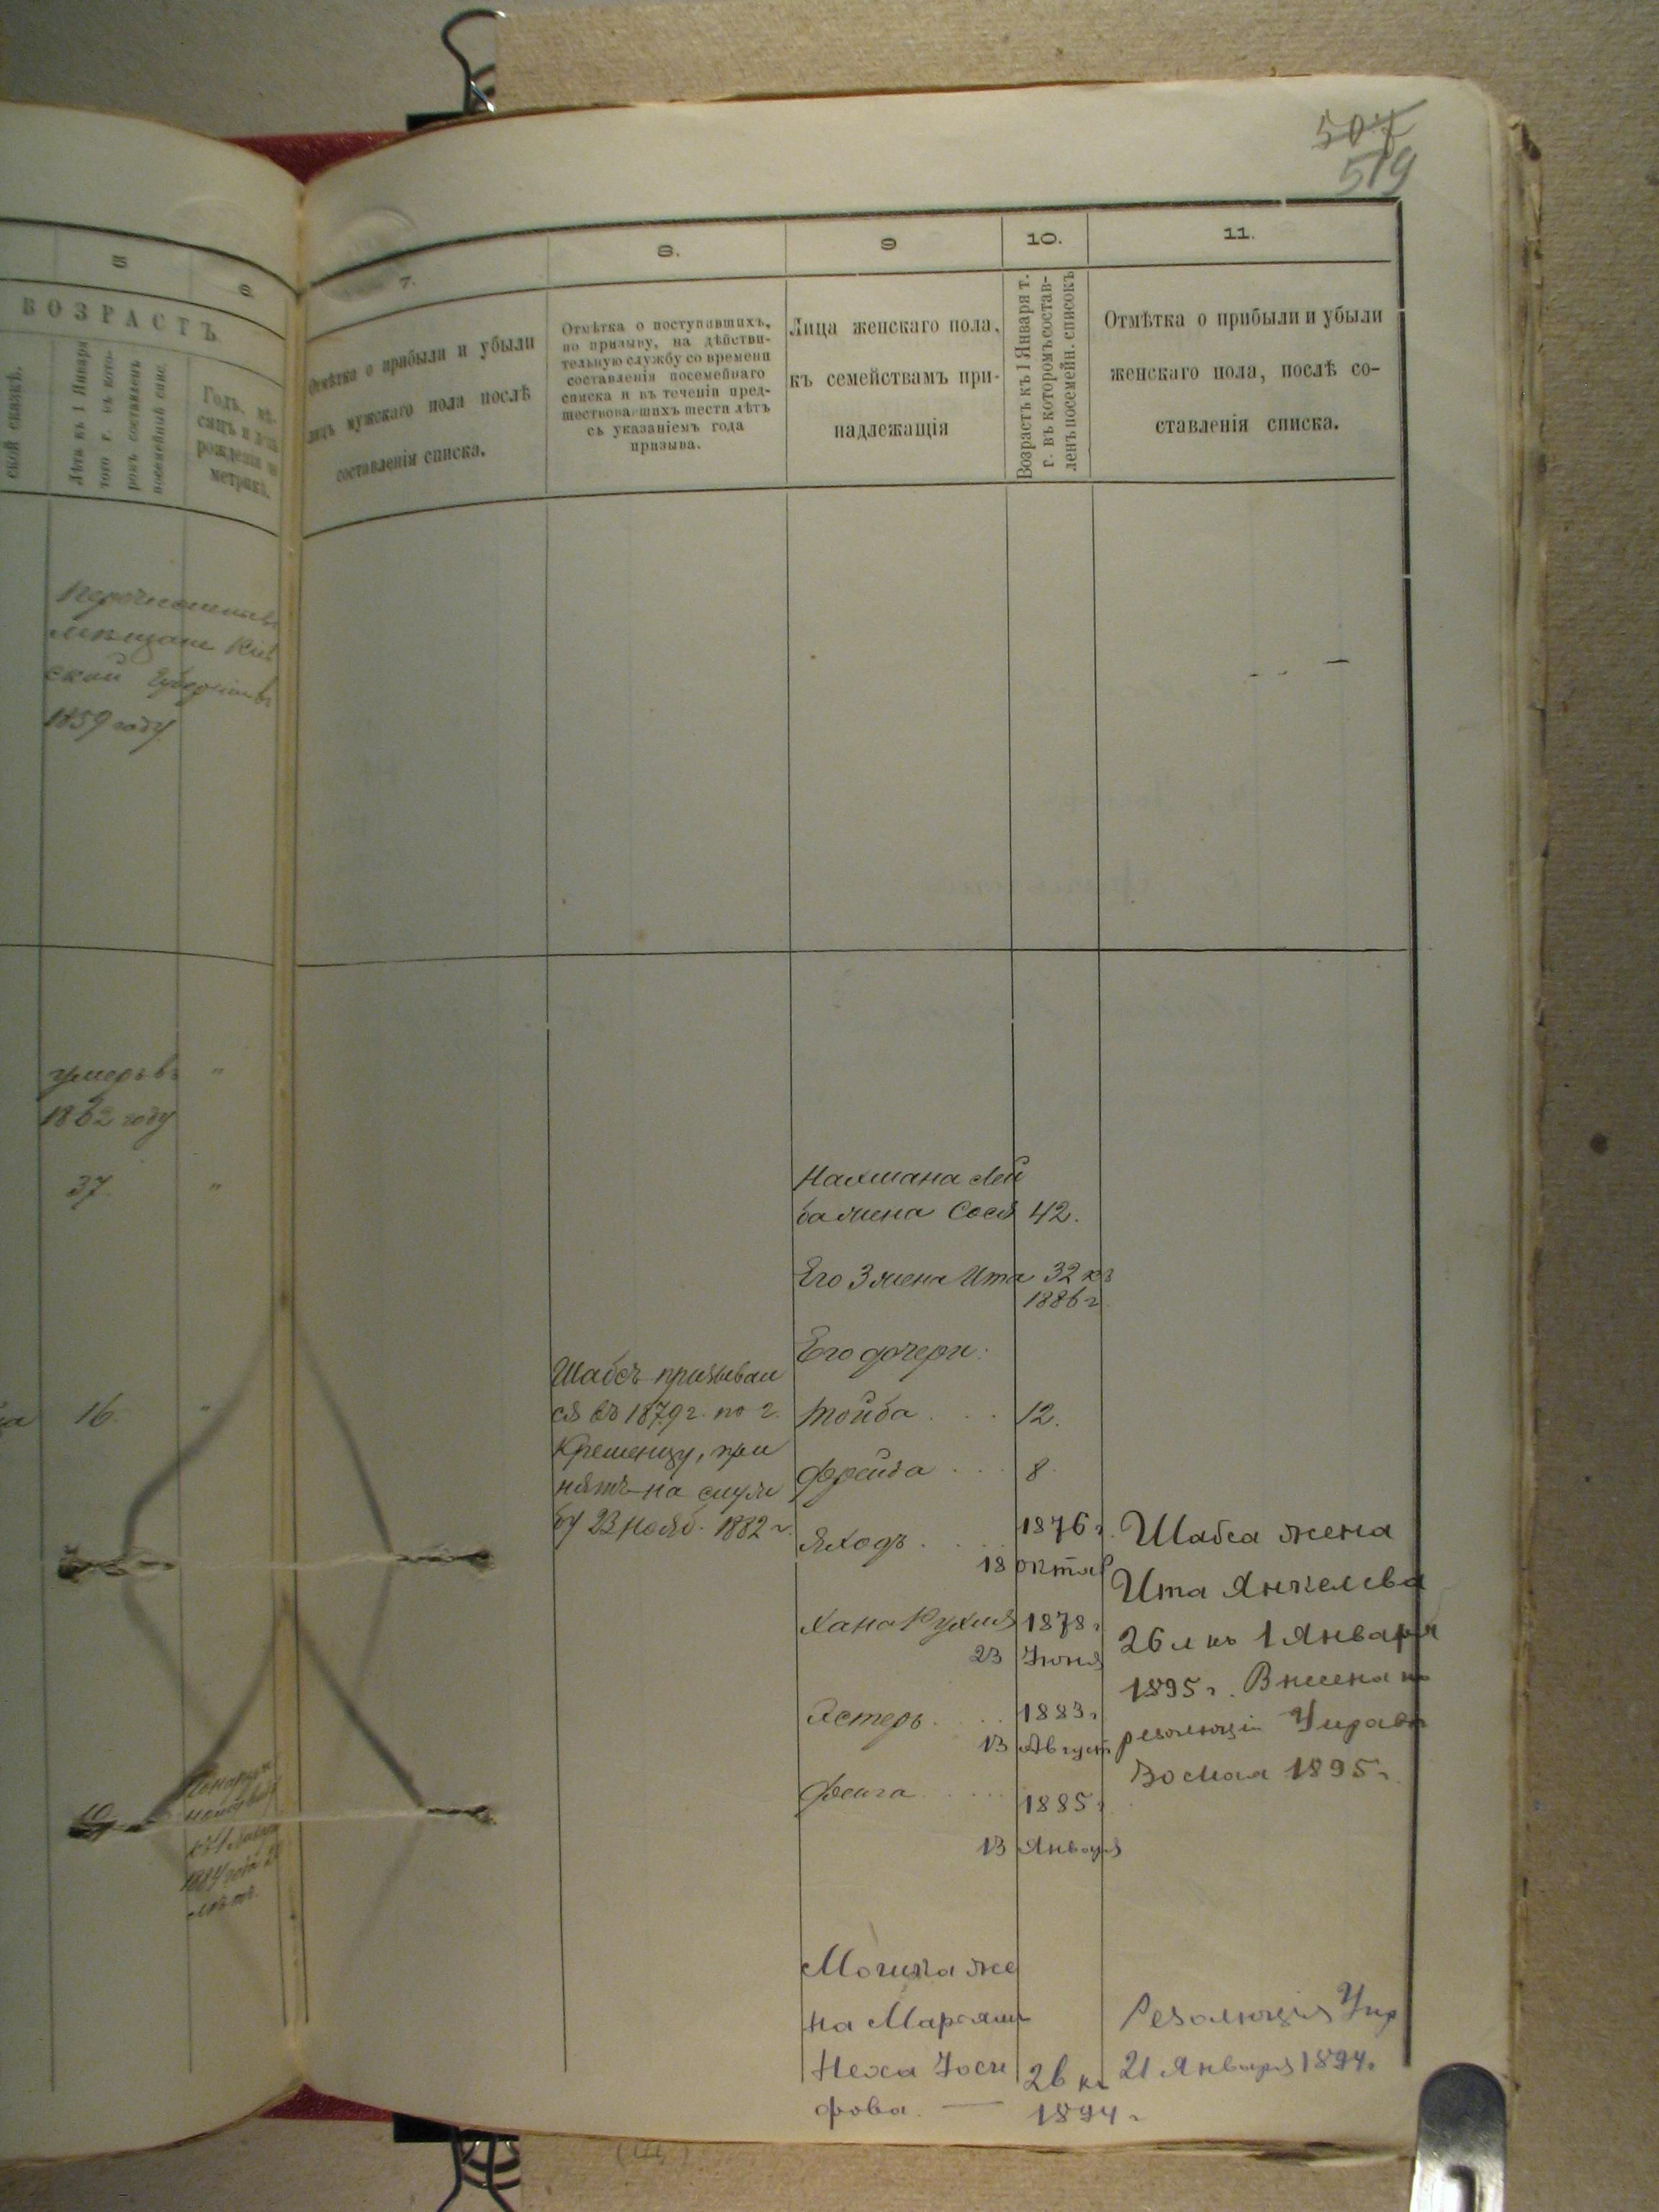 507
519
5
6
ВОЗРАСТЪ
ской сказкѣ.
Лѣтъ къ 1 Января
того г. въ кото-
ромъ составленъ
посемейный спис.
Годъ, мѣ-
сяцъ и день
рожденія по
метрикѣ.
7.
8.
9
10.
11.
Отмѣтка о прибыли и убыли
лицъ мужскаго пола послѣ
составленія списка.
Отмѣтка о поступившихъ,
по призыву, на дѣйстви-
тельную службу со времени
составленія посемейнаго
списка и въ теченіи пред-
шествовавшихъ шести лѣтъ
съ указаніемъ года
призыва.
Лица женскаго пола,
къ семействамъ при-
надлежащія
Возрастъ къ 1 Января т.
г. въ которомъ состав-
ленъ посемейн. списокъ
Отмѣтка о прибыли и убыли
женскаго пола, послѣ со-
ставленія списка.
мѣщане Кіев
ской Губерніи въ
1859 году
умеръ въ "
1862 году
37. "
16. "
10
1884 года
лѣтъ.
Шабсъ призывал
ся въ 1879 г. по г.
Кременцу, при
нятъ на служ
бу 23 Нояб. 1882 г.
Нахмана Лей
ба жена Сося 42.
Его 3 жена Ита 32 къ
1886 г.
Его дочери:
Тойба . . . 12.
Фрейда . . . 8.
Яходъ . . . . 1876 г.
18 Октяб
Хана Рухля 1878 г.
23 Іюня
Эстеръ . . . 1883 г.
13 Август
Фейга . . . . 1885 г
13 Января
Шабса жена
Ита Янкелева
26 л къ 1 Января
1895 г. Внесена по
резолюціи Управы
30 Мая 1895 г.
Мошка же
на Марьям
Неха Іоси 26 къ
фова. — 1894 г
Резолюція Упр
21 Января 1894.